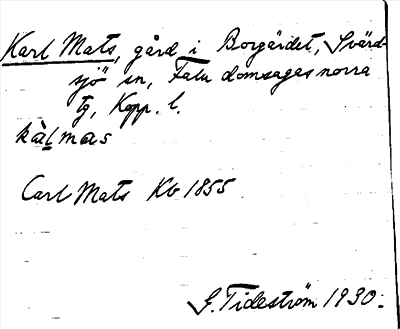 Karl Mats, gård i Borgärdet, Svärd-
sjö sn, Falu domsagas norra
tg, Kopp. l.
kàlmas
Carl Mats Kb 1855
G. Tideström 1930.